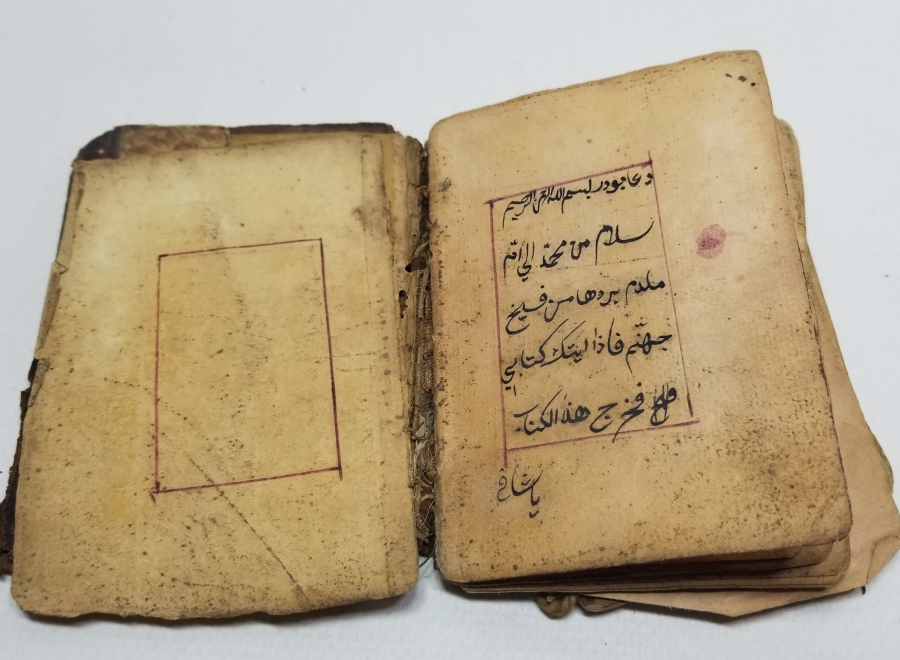 دعا بودر بسم الله الرحمن الرحيم
سلام من محمّد الي امّ
ملدم بردها من فسيح
جهنّم فاذا ايتك كتابي
فخرج هذا الكتاب
يا شافي